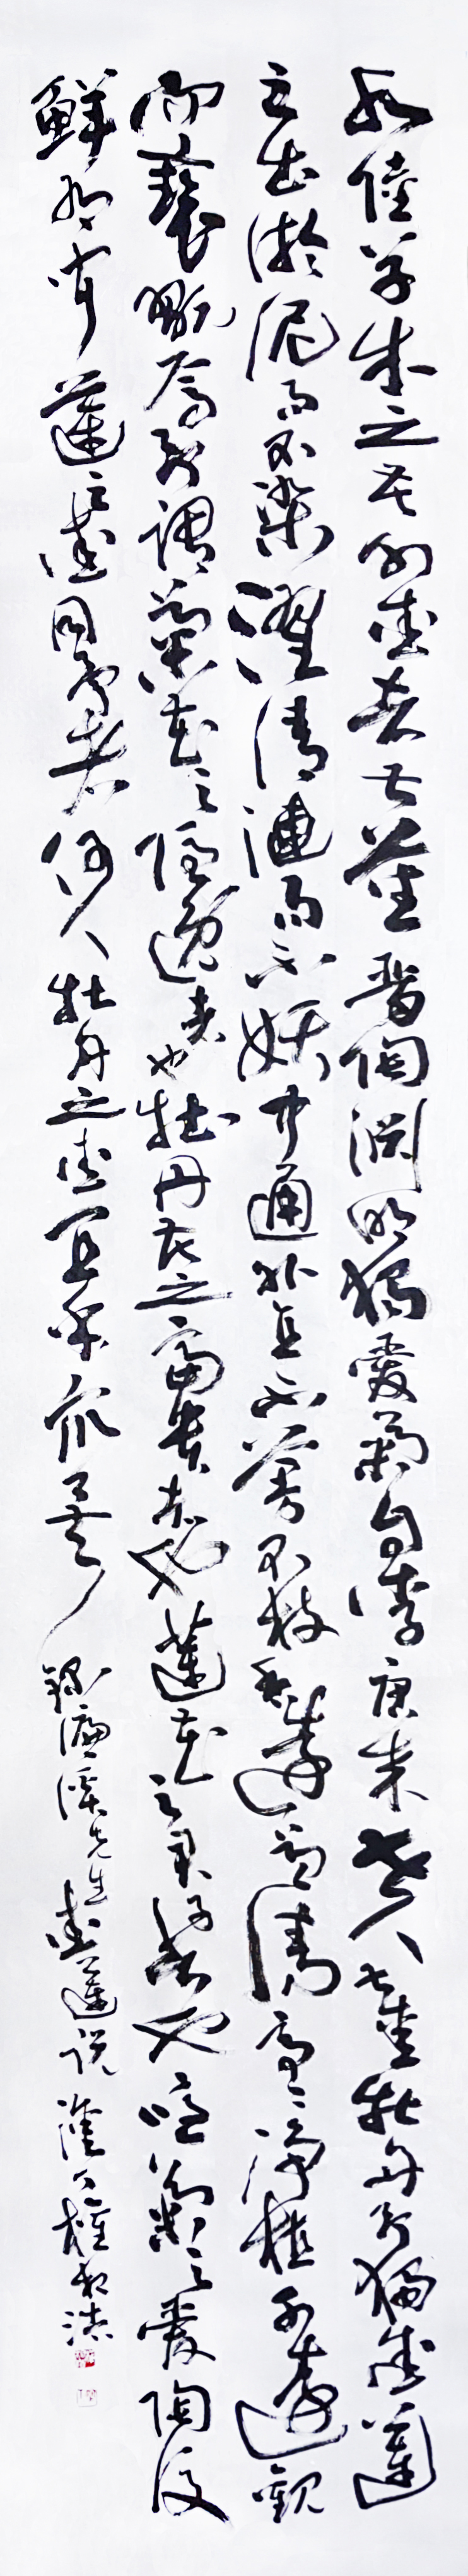 水陸草木之花可愛者甚蕃晉陶淵明獨愛菊自李唐來世人甚愛牡丹予獨愛蓮
之出淤泥而不染濯清漣而不妖中通外直不蔓不枝香遠益清亭亭淨植可遠觀
而褻翫焉予謂菊花之隱逸者也牡丹花之富貴者也蓮花之君子者也噫菊之愛陶後
鮮有聞蓮之愛同予者何人牡丹之愛宜乎眾矣 錄濂溪先生愛蓮說